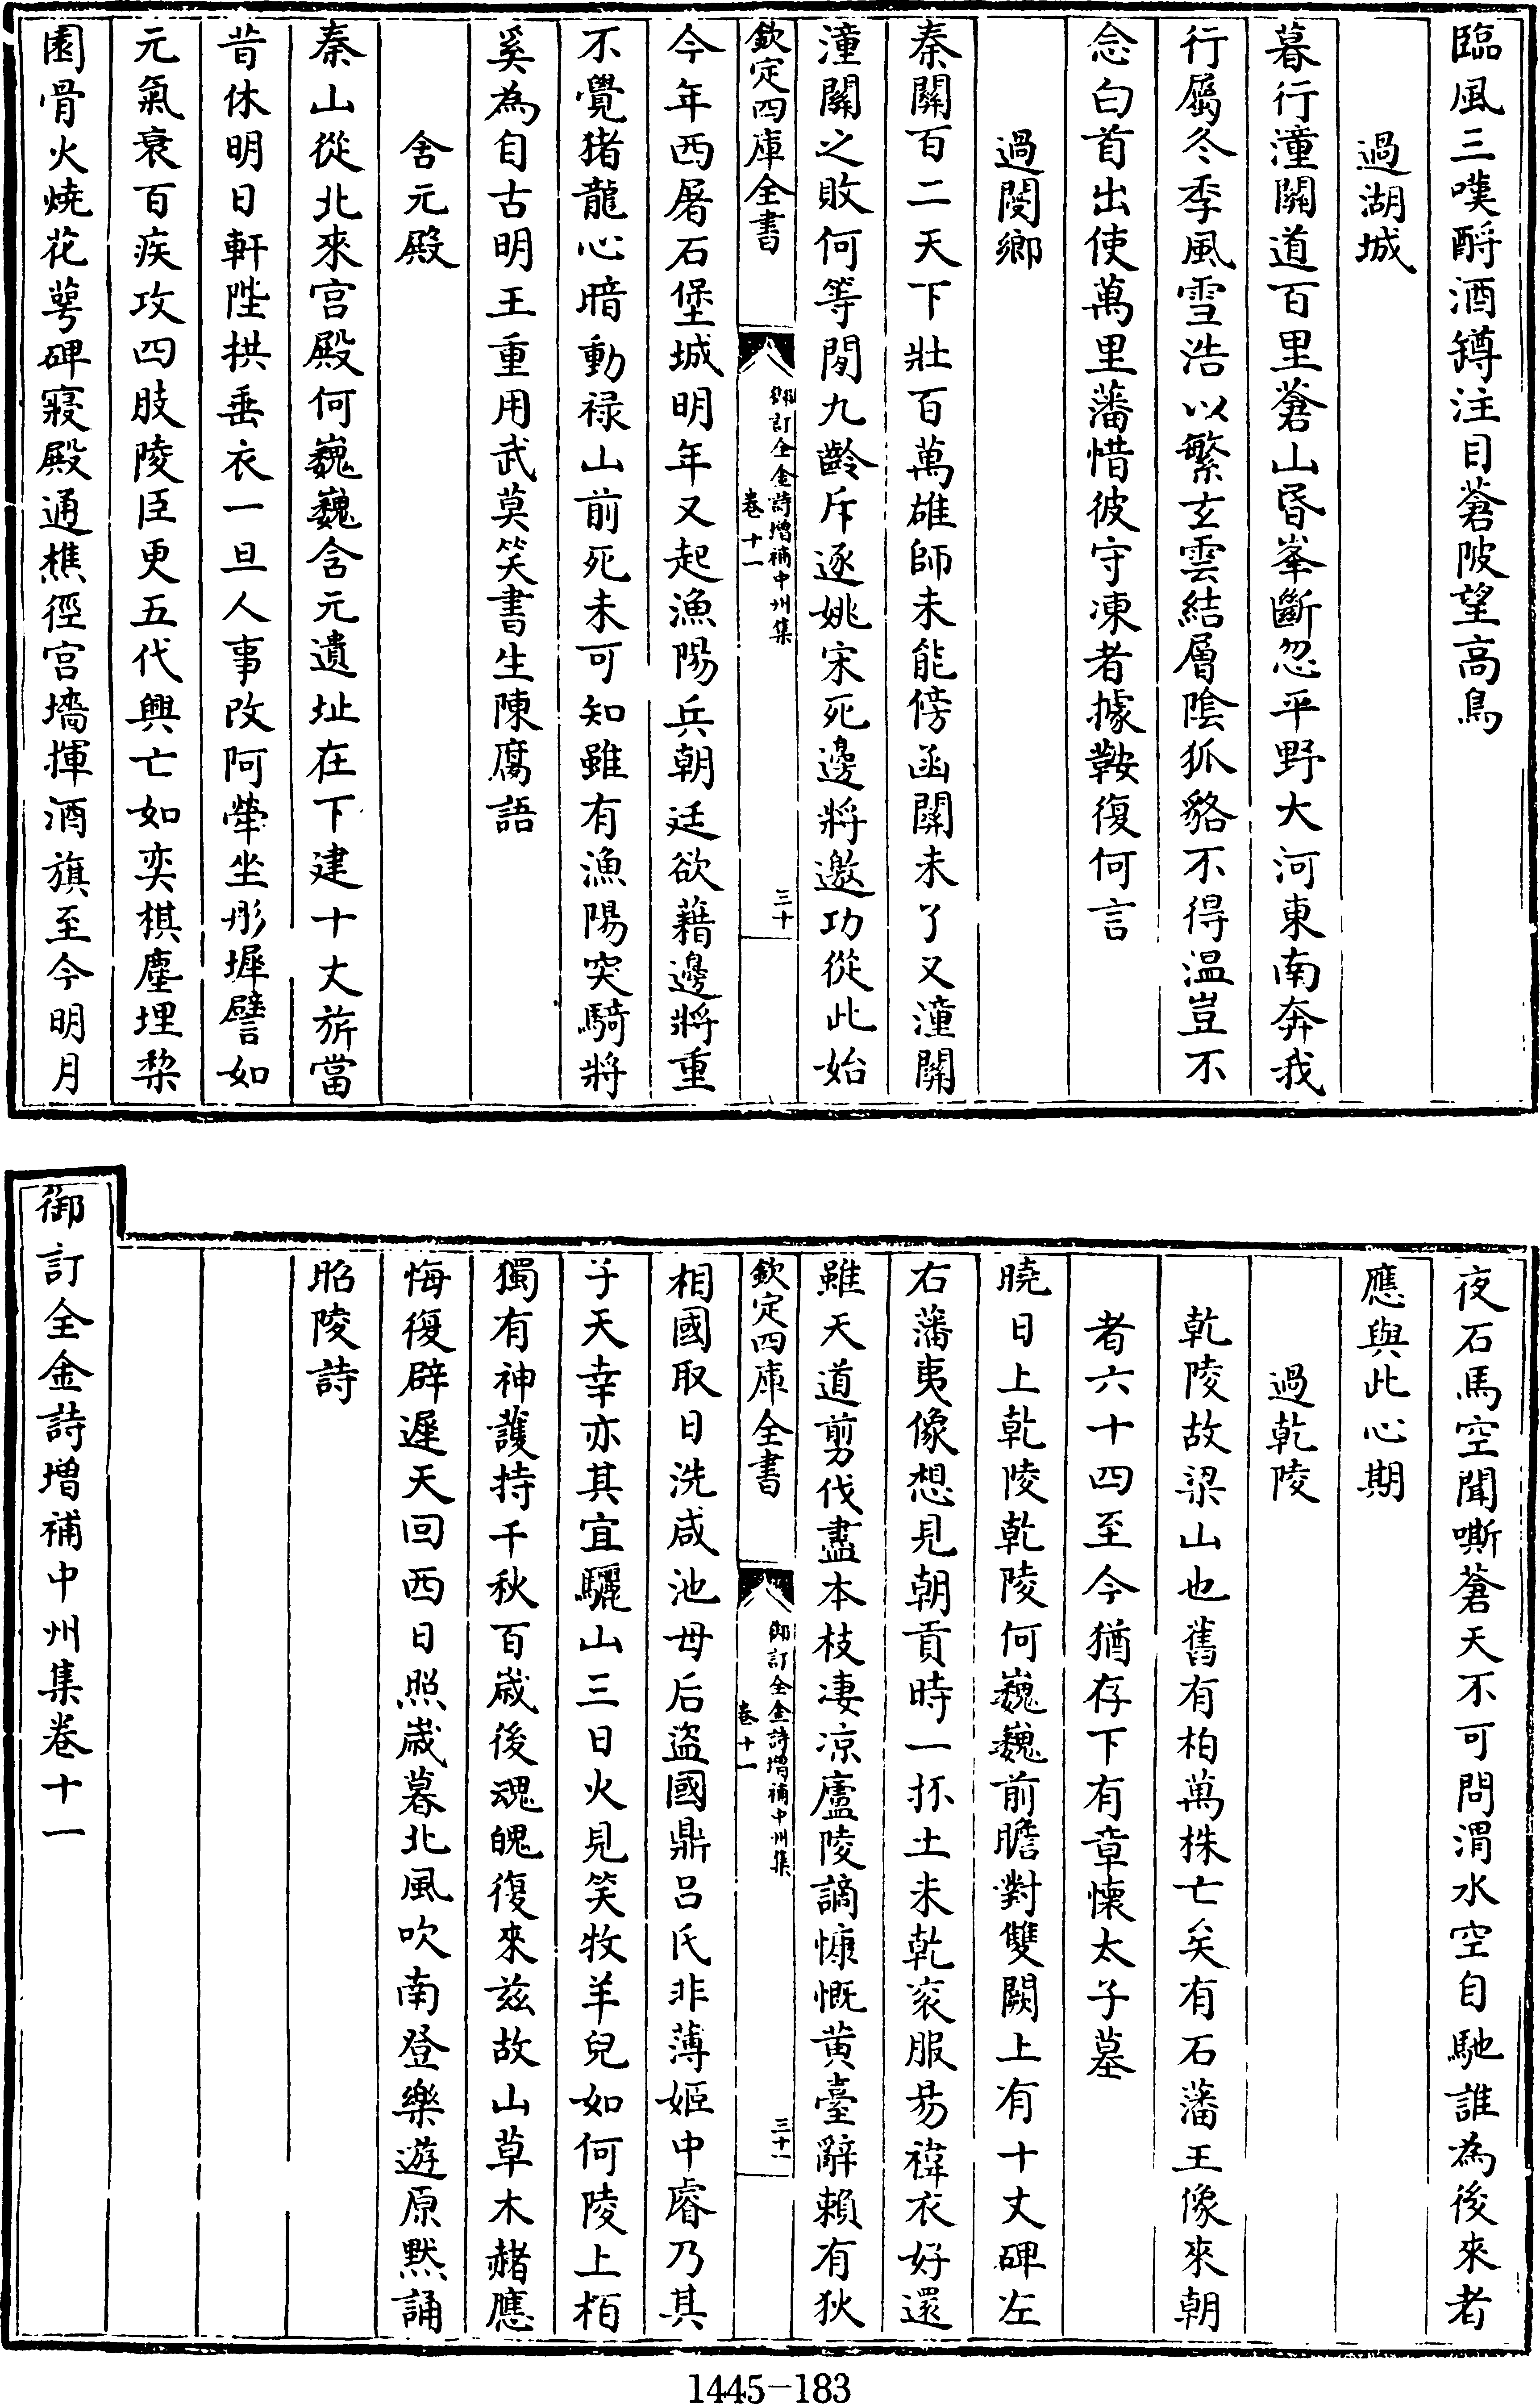 臨風三嘆酹酒罇注目蒼陂望高鳥
過湖城
暮行潼關道百里蒼山昏峯斷忽平野大河東南奔我
行屬冬季風雪浩以繁玄雲結層陰狐貉不得温豈不
念白首出使萬里藩惜彼守凍者據鞍復何言
過閿鄉
秦關百二天下壯百萬雄師未能傍函關未了又潼關
潼關之敗何等閒九齡斥逐姚宋死邊將邀功從此始
欽定四庫全書
御訂全金詩增補中州集
卷十一
三十
今年西屠石堡城明年又起漁陽兵朝廷欲藉邊將重
不覺猪龍心暗動禄山前死未可知雖有漁陽突騎將
奚為自古明王重用武莫笑書生陳腐語
含元殿
秦山從北來宫殿何巍巍含元遺址在下建十丈旂當
昔休明日軒陛拱垂衣一旦人事改阿犖坐彤墀譬如
元氣衰百疾攻四肢陵臣更五代興亡如奕棋塵埋棃
園骨火燒花萼碑寢殿通樵徑宫墻揮酒旗至今明月
夜石馬空聞嘶蒼天不可問渭水空自馳誰為後來者
應與此心期
過乾陵
乾陵故梁山也舊有柏萬株亡矣有石藩王像來朝
者六十四至今猶存下有章懷太子墓
曉日上乾陵乾陵何巍巍前瞻對雙闕上有十丈碑左
右藩夷像想見朝貢時一抔土未乾衮服易褘衣好還
雖天道剪伐盡本枝淒凉廬陵謫慷慨黄臺辭賴有狄
欽定四庫全書
御訂全金詩增補中州集
卷十一
三十一
相國取日洗咸池母后盗國鼎吕氏非薄姬中睿乃其
子天幸亦其宜驪山三日火見笑牧羊兒如何陵上栢
獨有神護持千秋百歲後魂魄復來兹故山草木赭應
悔復辟遲天回西日照歲暮北風吹南登樂遊原默誦
昭陵詩
御訂全金詩增補中州集卷十一
1445-183